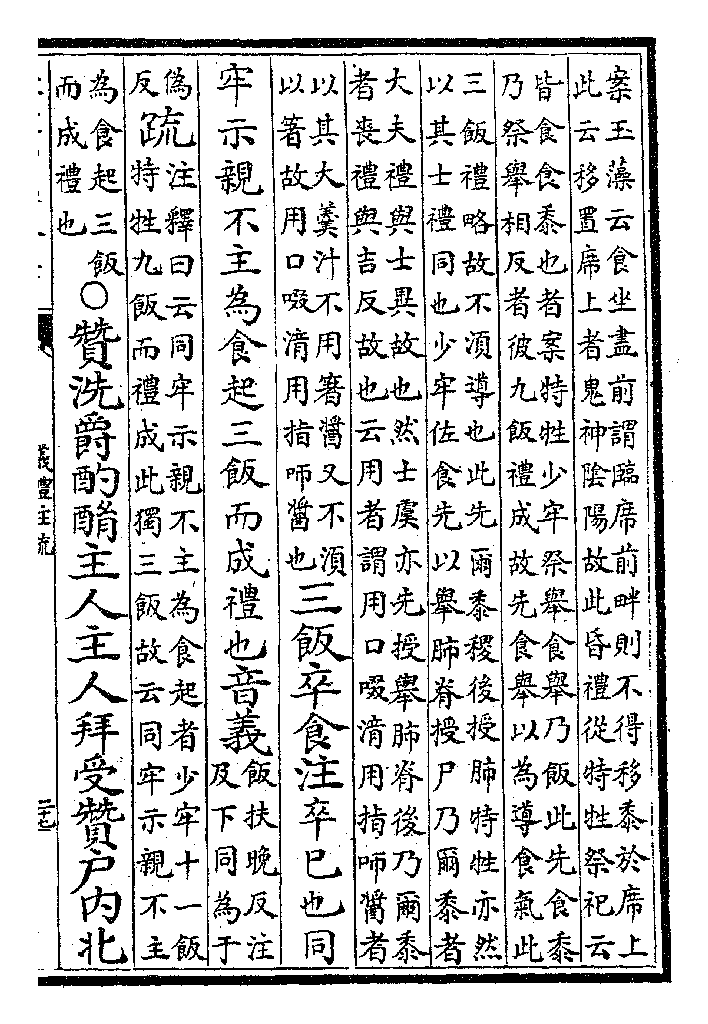 案玉藻云食坐盡前謂臨席前畔則不得移黍於席上
此云移置席上者鬼神陰陽故此昏禮從特牲祭祀云
皆食食黍也者案特牲少牢祭舉食舉乃飯此先食黍
乃祭舉相反者彼九飯禮成故先食舉以為導食氣此
三飯禮略故不湏導也此先爾黍稷後授肺特牲亦然
以其士禮同也少牢佐食先以舉肺脊授尸乃爾黍者
大夫禮與士異故也然士虞亦先授舉肺脊後乃爾黍
者喪禮與吉反故也云用者謂用口啜湆用指咂醬者
以其大羹汁不用箸醬又不湏
以箸故用口啜湆用指咂醬也
三飯卒食注卒巳也同
牢示親不主為食起三飯而成禮也音義
飯扶晚反注
及下同為于
偽
反
疏
注釋曰云同牢示親不主為食起者少牢十一飯
特牲九飯而禮成此獨三飯故云同牢示親不主
為食起三飯
而成禮也
○贊洗爵酌酳主人主人拜受贊户内北